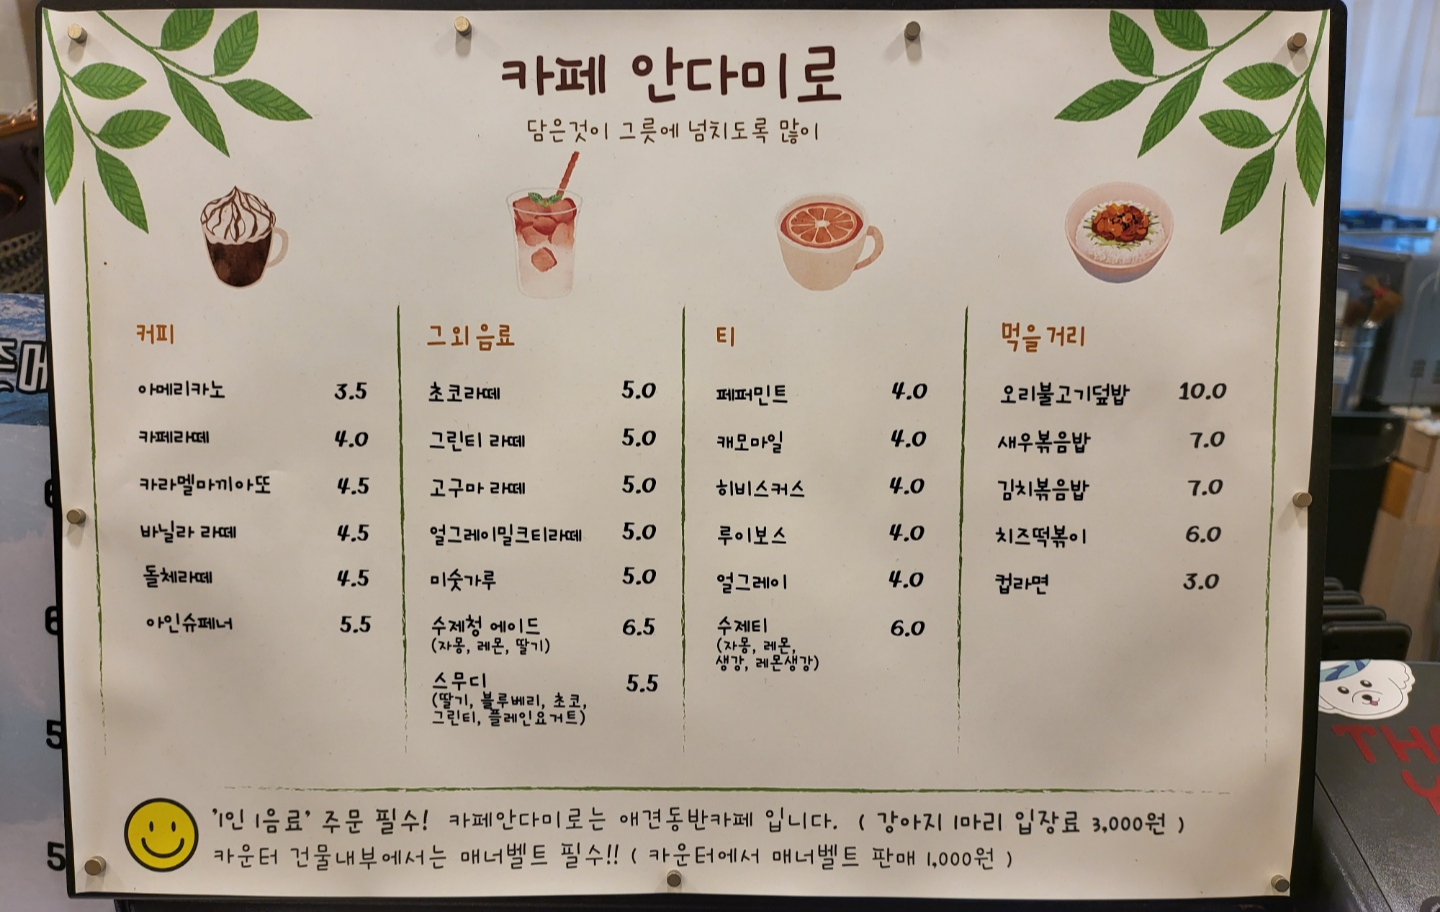 카페 안다미로
담은것이 그릇에 넘치도록 많이
커피
아메리카노 3.5
카페라떼 4.0
카라멜마끼아또 4.5
바닐라 라떼 4.5
돌체라떼 4.5
아인슈페너 5.5
그외음료
초코라떼 5.0
그린티 라떼 5.0
고구마 라떼 5.0
얼그레이밀크티라떼 5.0
미숫가루 5.0
수제청 에이드 6.5
(자몽, 레몬, 딸기)
스무디 5.5
(딸기, 블루베리, 초코,
그린티, 플레인요거트)
티
페퍼민트 4.0
캐모마일 4.0
히비스커스 4.0
루이보스 4.0
얼그레이 4.0
수제티 6.0
(자몽, 레몬,
생강, 레몬생강)
먹을거리
오리불고기덮밥 10.0
새우볶음밥 7.0
김치볶음밥 7.0
치즈떡볶이 6.0
컵라면 3.0
'1인 1음료' 주문 필수! 카페안다미로는 애견동반카페 입니다. ( 강아지 1마리 입장료 3,000원 )
카운터 건물내부에서는 매너벨트 필수!! ( 카운터에서 매너벨트 판매 1,000원 )